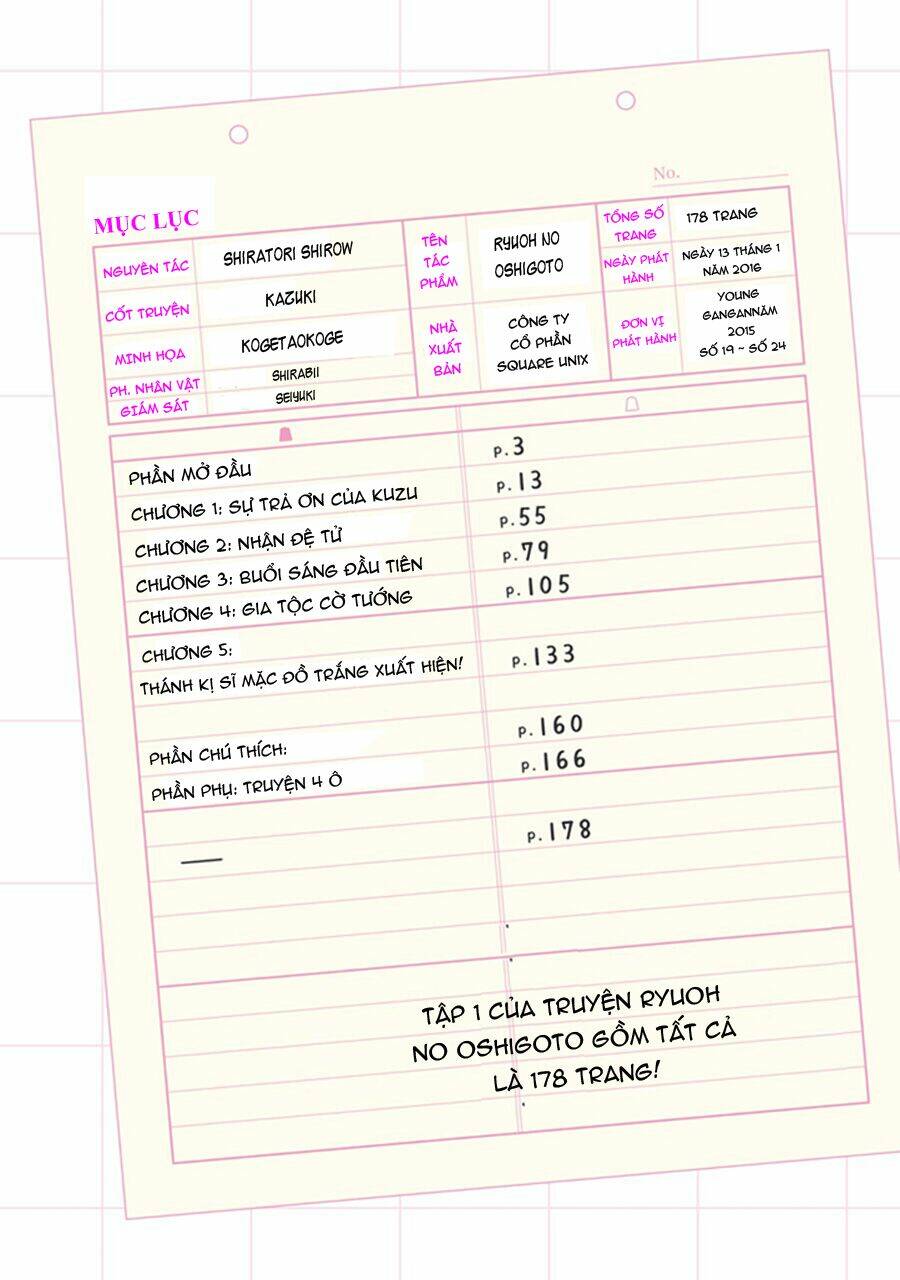 No.
MỤC LỤC
NGUYÊN TÁC
SHIRATORI SHIROW
CỐT TRUYỆN
KAZUKI
MINH HỌA
KOGETAOKOGE
PH. NHÂN VẬT
SHIRABII
GIÁM SÁT
SEIYUKI
TÊN
TÁC
PHẨM
RYUOH NO
OSHIGOTO
NHÀ
XUẤT
BẢN
CÔNG TY
CỔ PHẦN
SQUARE UNIX
TỔNG SỐ
TRANG
178 TRANG
NGÀY PHÁT
HÀNH
NGÀY 13 THÁNG 1
NĂM 2016
ĐƠN VỊ
PHÁT HÀNH
YOUNG
GANGANNĂM
2015
SỐ 19 ~ SỐ 24
PHẦN MỞ ĐẦU p.3
CHƯƠNG 1: SỰ TRẢ ƠN CỦA KUZU p.13
CHƯƠNG 2: NHẬN ĐỆ TỬ p.55
CHƯƠNG 3: BUỔI SÁNG ĐẦU TIÊN p.79
CHƯƠNG 4: GIA TỘC CỜ TƯỚNG p.105
CHƯƠNG 5:
THÁNH KỊ SĨ MẶC ĐỒ TRẮNG XUẤT HIỆN! p.133
PHẦN CHÚ THÍCH: p.160
PHẦN PHỤ: TRUYỆN 4 Ô p.166
— p.178
TẬP 1 CỦA TRUYỆN RYUOH
NO OSHIGOTO GỒM TẤT CẢ
LÀ 178 TRANG!